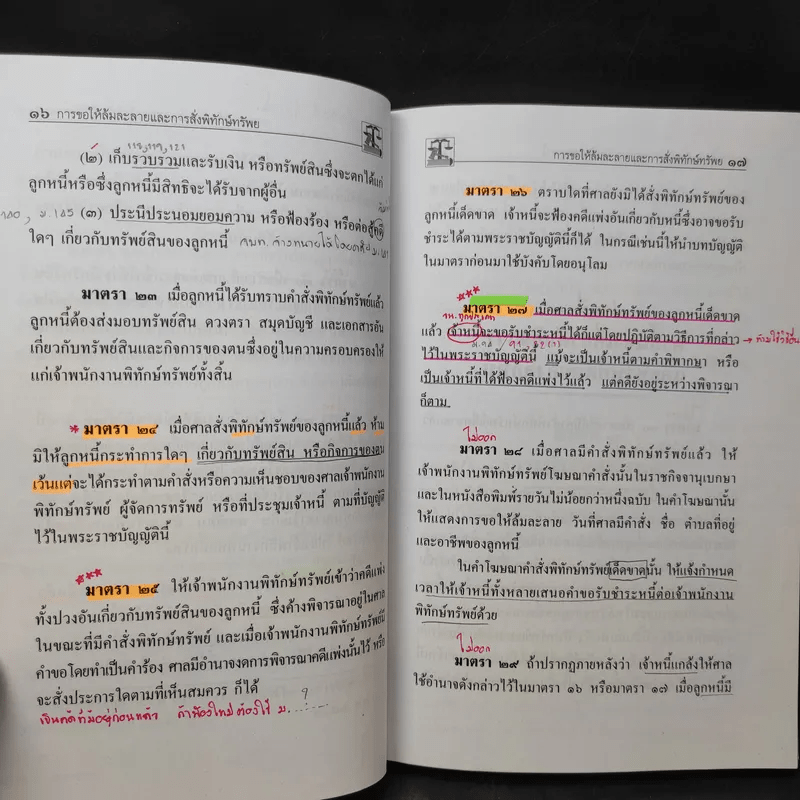 ๑๖ การขอให้ล้มละลายและการสั่งพิทักษ์ทรัพย์
118, 119, 121
(๒) เก็บรวบรวมและรับเงิน หรือทรัพย์สินซึ่งจะตกได้แก่
ลูกหนี้หรือซึ่งลูกหนี้มีสิทธิจะได้รับจากผู้อื่น
ม.145 (๓) ประนีประนอมยอมความ หรือฟ้องร้อง หรือต่อสู้คดี
ใดๆ เกี่ยวกับทรัพย์สินของลูกหนี้
มาตรา ๒๓ เมื่อลูกหนี้ได้รับทราบคำสั่งพิทักษ์ทรัพย์แล้ว
ลูกหนี้ต้องส่งมอบทรัพย์สิน ดวงตรา สมุดบัญชี และเอกสารอัน
เกี่ยวกับทรัพย์สินและกิจการของตนซึ่งอยู่ในความครอบครองให้
แก่เจ้าพนักงานพิทักษ์ทรัพย์ทั้งสิ้น
* มาตรา ๒๔ เมื่อศาลสั่งพิทักษ์ทรัพย์ของลูกหนี้แล้ว ห้าม
มิให้ลูกหนี้กระทำการใดๆ เกี่ยวกับทรัพย์สิน หรือกิจการของตน
เว้นแต่จะได้กระทำตามคำสั่งหรือความเห็นชอบของศาลเจ้าพนักงาน
พิทักษ์ทรัพย์ ผู้จัดการทรัพย์ หรือที่ประชุมเจ้าหนี้ ตามที่บัญญัติ
ไว้ในพระราชบัญญัตินี้
***
มาตรา ๒๕ ให้เจ้าพนักงานพิทักษ์ทรัพย์เข้าว่าคดีแพ่ง
ทั้งปวงอันเกี่ยวกับทรัพย์สินของลูกหนี้ ซึ่งค้างพิจารณาอยู่ในศาล
ในขณะที่มีคำสั่งพิทักษ์ทรัพย์ และเมื่อเจ้าพนักงานพิทักษ์ทรัพย์มี
คำขอโดยทำเป็นคำร้อง ศาลมีอำนาจงดการพิจารณาคดีแพ่งนั้นไว้ หรือ
จะสั่งประการใดตามที่เห็นสมควร ก็ได้
ถ้าฟ้องใหม่ต้องใช้ ม.
การขอให้ล้มละลายและการสั่งพิทักษ์ทรัพย์ ๑๗
มาตรา ๒๖ ตราบใดที่ศาลยังมิได้สั่งพิทักษ์ทรัพย์ของ
ลูกหนี้เด็ดขาด เจ้าหนี้จะฟ้องคดีแพ่งอันเกี่ยวกับหนี้ซึ่งอาจขอรับ
ชำระได้ตามพระราชบัญญัตินี้ก็ได้ ในกรณีเช่นนี้ให้นำบทบัญญัติ
ในมาตราก่อนมาใช้บังคับโดยอนุโลม
***
มาตรา ๒๗ เมื่อศาลสั่งพิทักษ์ทรัพย์ของลูกหนี้เด็ดขาด
แล้ว เจ้าหนี้จะขอรับชำระหนี้ได้ก็แต่โดยปฏิบัติตามวิธีการที่กล่าว → ห้ามใช้วิธีอื่น
ไว้ในพระราชบัญญัตินี้ แม้จะเป็นเจ้าหนี้ตามคำพิพากษา หรือ
เป็นเจ้าหนี้ที่ได้ฟ้องคดีแพ่งไว้แล้ว แต่คดียังอยู่ระหว่างพิจารณา
ก็ตาม
ไม่ออก
มาตรา ๒๘ เมื่อศาลมีคำสั่งพิทักษ์ทรัพย์แล้ว ให้
เจ้าพนักงานพิทักษ์ทรัพย์โฆษณาคำสั่งนั้นในราชกิจจานุเบกษา
และในหนังสือพิมพ์รายวันไม่น้อยกว่าหนึ่งฉบับ ในคำโฆษณานั้น
ให้แสดงการขอให้ล้มละลาย วันที่ศาลมีคำสั่ง ชื่อ ตำบลที่อยู่
และอาชีพของลูกหนี้
ในคำโฆษณาคำสั่งพิทักษ์ทรัพย์เด็ดขาดนั้น ให้แจ้งกำหนด
เวลาให้เจ้าหนี้ทั้งหลายเสนอคำขอรับชำระหนี้ต่อเจ้าพนักงาน
พิทักษ์ทรัพย์ด้วย
ไม่ออก
มาตรา ๒๙ ถ้าปรากฏภายหลังว่า เจ้าหนี้แกล้งให้ศาล
ใช้อำนาจดังกล่าวไว้ในมาตรา ๑๖ หรือมาตรา ๑๗ เมื่อลูกหนี้มี